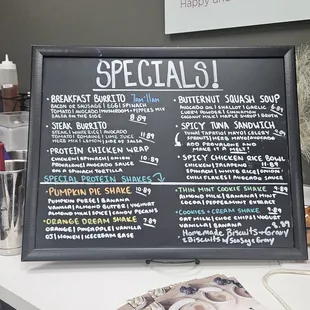 Happy and
SPECIALS!
BREAKFAST BURRITO 7am-11am
BACON OR SAUSAGE | EGG | SPINACH
TOMATO | AVOCADO | MUSHROOM + PEPPERS MIX
SALSA ON THE SIDE 8.89
STEAK BURRITO
STEAK | WHITE RICE | AVOCADO
TOMATO | ROMAINE | LIME JUICE 11.89
HERB MIX | LEMON | SIDE OF SALSA
PROTEIN CHICKEN WRAP
CHICKEN | SPINACH | ONION 10.89
PROVALONE | AVOCADO SAUCE
ON A SPINACH TORTILLA
BUTTERNUT SQUASH SOUP
AVOCADO OIL | SHALLOT | GARLIC
COCONUT MILK | MAPLE SYRUP | BROTH
SPICY TUNA SANDWICH
TUNA | TAPATIO | MAYO | CELERY
HERBS | MAYO | HORSERADISH
ADD PROVALONE AND
MAKE IT A MELT!
SPICY CHICKEN RICE BOWL
CHICKEN | JALAPENO 11.89
SPINACH | WHITE RICE | ONION
CHILI FLAKES | AVOCADO SAUCE
SPECIAL PROTEIN SHAKES
PUMPKIN PIE SHAKE 10.89
PUMPKIN PUREE | BANANA
VANILLA | ALMOND BUTTER | YOGURT
ALMOND MILK | SPICE | CANDY PECANS
ORANGE DREAM SHAKE 7.89
ORANGE | PINEAPPLE | VANILLA
OJ | HONEY | ICECREAM BASE
THIN MINT COOKIE SHAKE
ALMOND MILK | BANANA | MINT
COCOA | PEPPERMINT EXTRACT
COOKIES + CREAM SHAKE
OAT MILK | CHOC CHIPS | YOGURT
VANILLA | BANANA 8.89
Homemade Biscuits + Gravy
Biscuits w/ Sausage Gravy